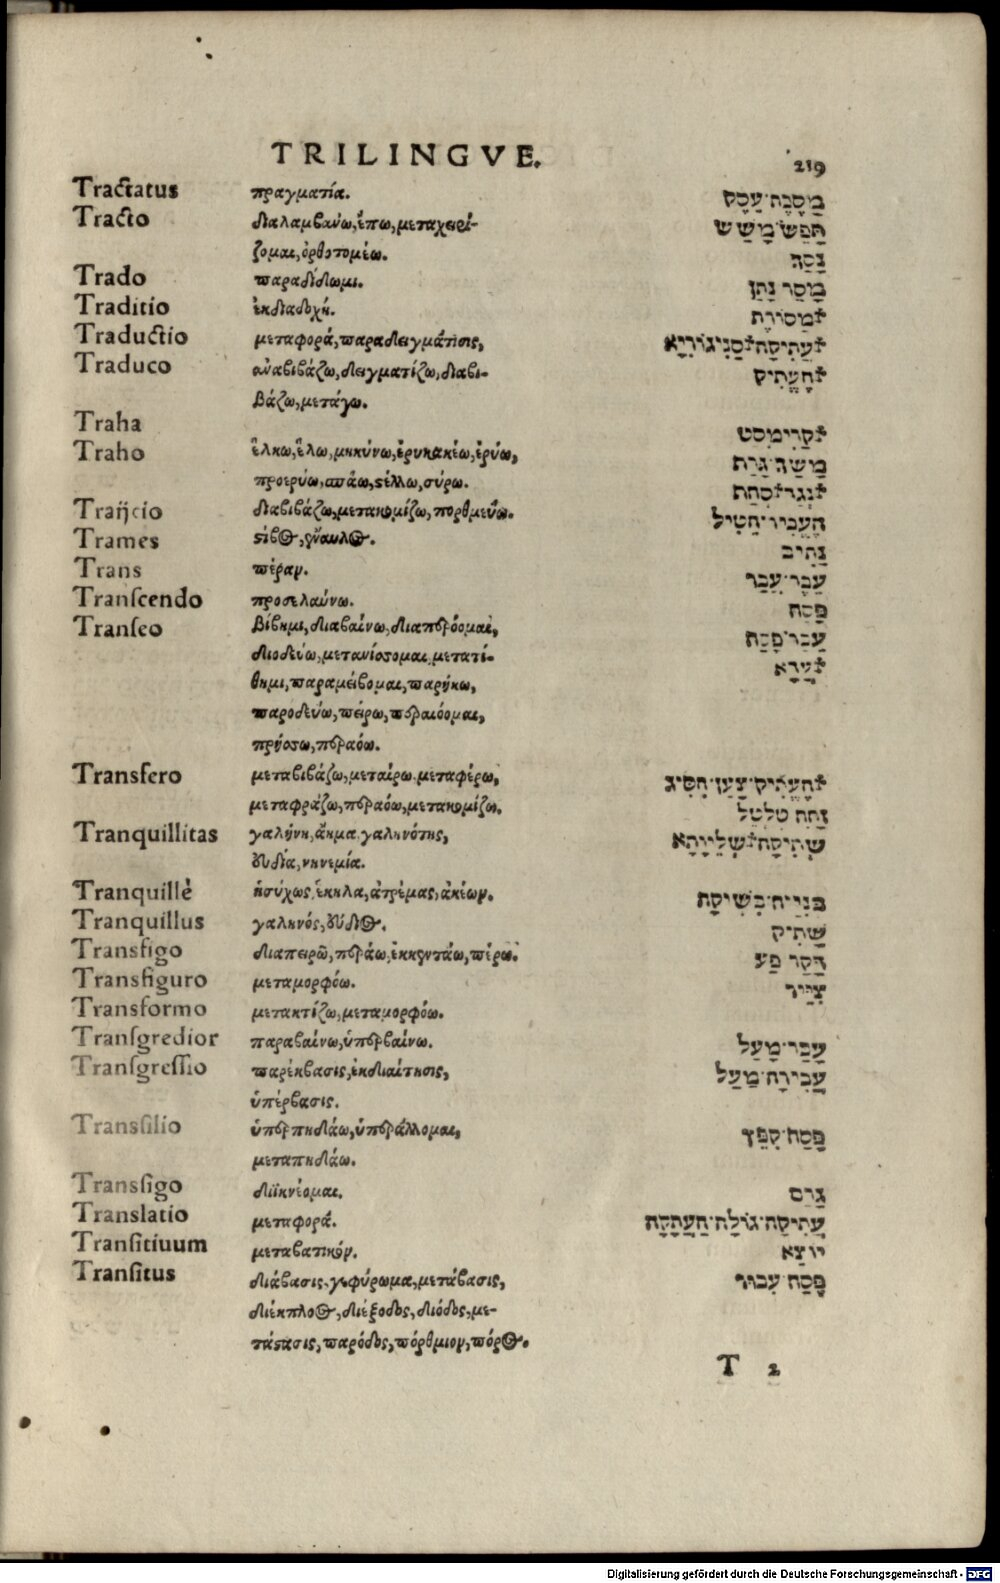 TRILINGVE. 219
Tractatus πραγματία. מַסֶּכֶת עֵסֶק
Tracto διαλαμβανω, ἕπω, μεταχειρί- תָּפַשׂ מָשַׁשׁ
ζομαι, ὀρθοτομέω. נָסַךְ
Trado παραδίδωμι. מָסַר נָתַן
Traditio ἐκδιαδοχή. מַסוֹרֶת
Traductio μεταφορά, παραδειγμάτισις,
Traduco ἀναβιβάζω, δειγματίζω, διαβι-
βάζω, μετάγω.
Traha
Traho ἕλκω, ἕλω, μηκύνω, ἐρυκακέω, ἐρύω, מָשַׁךְ
προερύω, σπάω, στέλλω, σύρω.
Traijcio διαβιβάζω, μετακομίζω, πορθμεύω.
Trames στίβος, γύαυλος. נָתִיב
Trans πέραν. עֵבֶר
Transcendo προσελαύνω. פסח
Transeo βίβημι, διαβαίνω, διαπεράομαι, עָבַר פָּסַח
διοδεύω, μετανίσσομαι, μετατί-
θημι, παραμείβομαι, παρήκω,
παροδεύω, πείρω, περαιόομαι,
πρήσσω, περαόω.
Transfero μεταβιβάζω, μεταίρω, μεταφέρω,
μεταφράζω, περαόω, μετακομίζω.
Tranquillitas γαλήνη, ἄημα, γαληνότης,
εὐδία, νηνεμία.
Tranquillè ἡσύχως, ἕκηλα, ἀτρέμας, ἀκέων.
Tranquillus γαληνός, εὔδιος. שָׁתִיק
Transfigo διαπειρῶ, περάω, ἐκκεντάω, πέρω. דָּקַר
Transfiguro μεταμορφόω. צִיֵּיר
Transformo μετακτίζω, μεταμορφόω.
Transgredior παραβαίνω, ὑπερβαίνω. עָבַר מָעַל
Transgressio παρέκβασις, ἐκδιαίτησις, עֲבֵירָה מַעַל
ὑπέρβασις.
Transsilio ὑπερπηδάω, ὑπεράλλομαι, פָּסַח קִפֵּץ
μεταπηδάω.
Transsigo διϊκνέομαι.
Translatio μεταφορά.
Transitiuum μεταβατικόν. יוֹצֵא
Transitus διάβασις, γεφύρωμα, μετάβασις, פָּסַח עִבּוּר
διέκπλοος, διέξοδος, δίοδος, με-
τάστασις, παρόδος, πόρθμιον, πόρος.
T 2
Digitalisierung gefördert durch die Deutsche Forschungsgemeinschaft - DFG